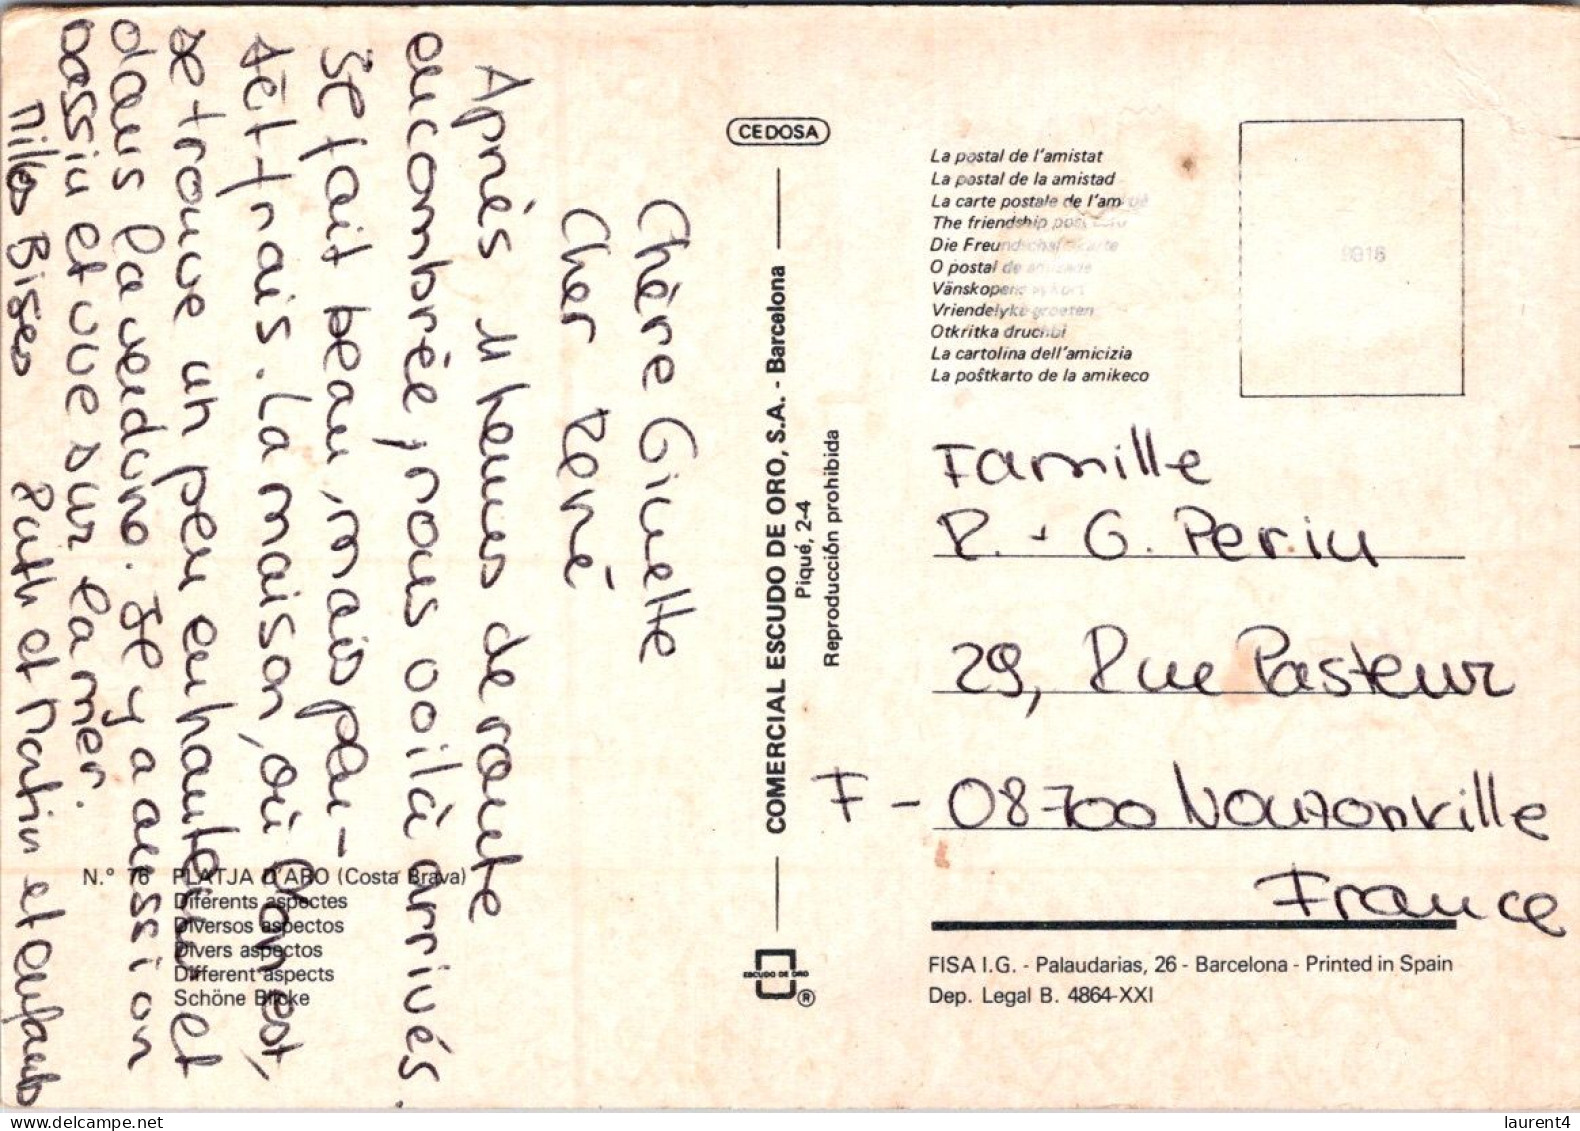 Chère Ginette
Cher René
Après 11 heures de route
encombrée, nous voilà arrivés.
Il fait beau, mais plu-
tôt frais. La maison, où l'on est,
se trouve un peu en hauteur et
dans la verdure. Il y a aussi un
bassin et vue sur la mer.
Milles Bises Ruth et Martin et enfants
CEDOSA
COMERCIAL ESCUDO DE ORO, S.A. - Barcelona
Piqué, 2-4
Reproducción prohibida
ESCUDO DE ORO
®
N.° 76 PLATJA D'ARO (Costa Brava)
Diferents aspectes
Diversos aspectos
Divers aspects
Different aspects
Schöne Blicke
La postal de l'amistat
La postal de la amistad
La carte postale de l'amitié
The friendship post card
Die Freundschaftskarte
O postal de amizade
Vänskopens vykort
Vriendelyke groeten
Otkritka druchbi
La cartolina dell'amicizia
La poŝtkarto de la amikeco
9916
Famille
R. + G. Perin
29, Rue Pasteur
F - 08700 Nouzonville
France
FISA I.G. - Palaudarias, 26 - Barcelona - Printed in Spain
Dep. Legal B. 4864-XXI
laurent4